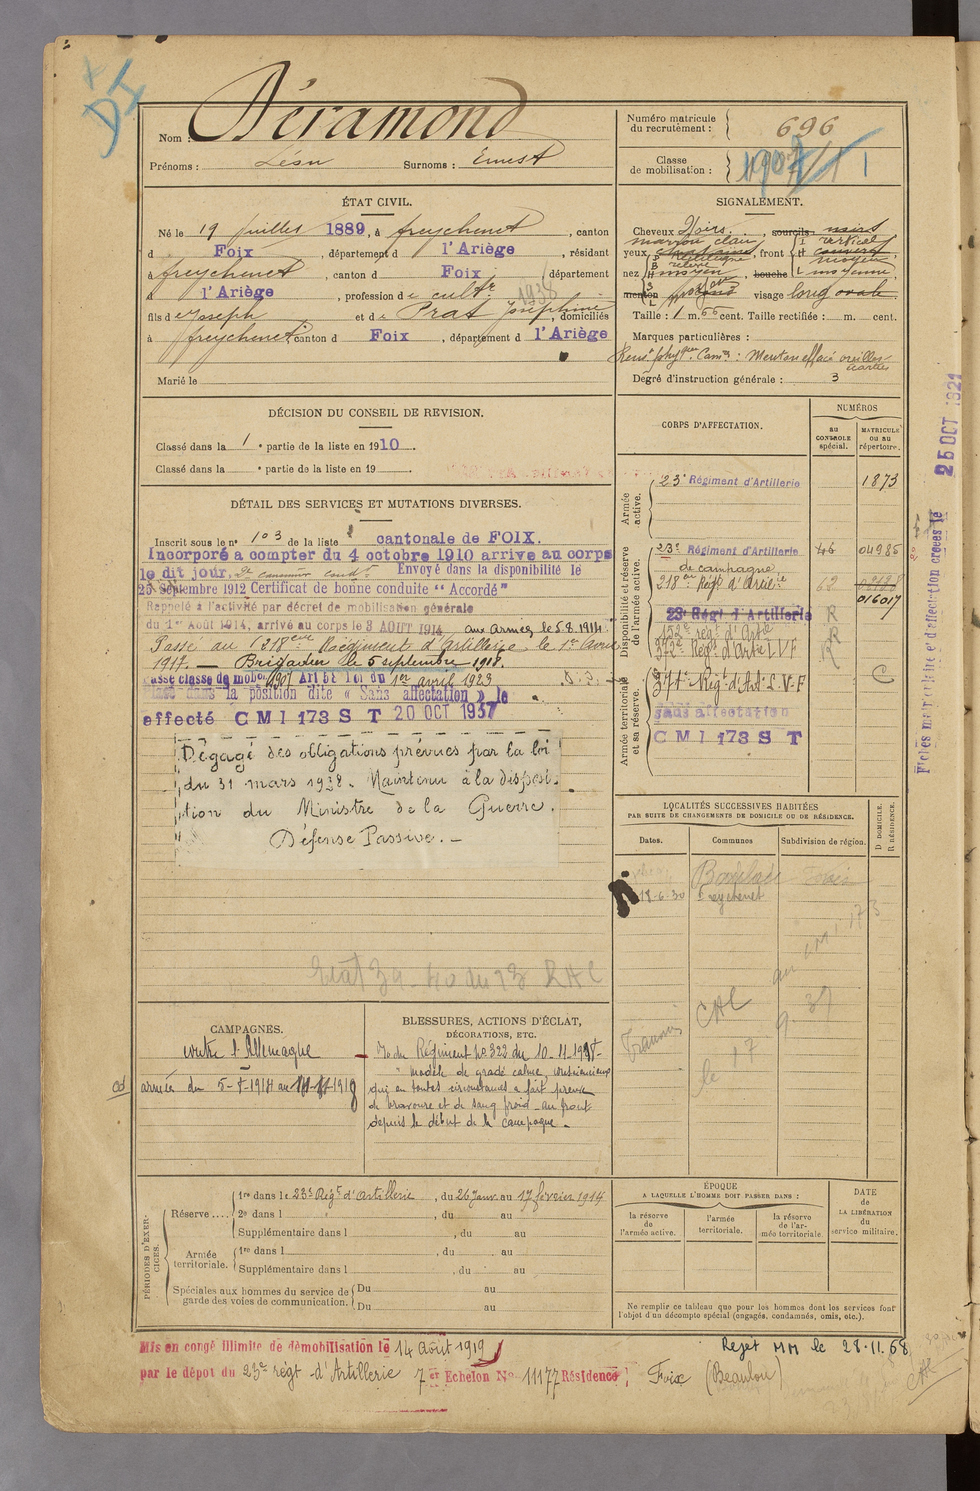 DI
Nom : Déramond
Prénoms : Léon Surnoms : Ernest
Numéro matricule du recrutement : 696
Classe de mobilisation : 1907
ÉTAT CIVIL.
Né le 19 Juillet 1889, à Freychenet, canton
d Foix, département d l'Ariège, résidant
à Freychenet, canton d Foix, département
d l'Ariège, profession de cultr
1938
fils de Joseph et de Prat Joséphine, domiciliés
à Freychenet canton d Foix, département d l'Ariège
Marié le
SIGNALEMENT.
Cheveux Noirs, sourcils noirs
marron clair vertical
yeux, front
nez moyen, bouche moyenne
menton visage long ovale
Taille : 1 m. 66 cent. Taille rectifiée : m. cent.
Marques particulières :
Menton effacé oreilles écartées
Degré d'instruction générale : 3
DÉCISION DU CONSEIL DE REVISION.
Classé dans la 1e partie de la liste en 1910.
Classé dans la e partie de la liste en 19 .
DÉTAIL DES SERVICES ET MUTATIONS DIVERSES.
Inscrit sous le no 103 de la liste cantonale de FOIX.
Incorporé a compter du 4 octobre 1910 arrive au corps
le dit jour, 2e canonnier condr Envoyé dans la disponibilité le
25 Septembre 1912 Certificat de bonne conduite "Accordé"
Rappelé à l'activité par décret de mobilisation générale
du 1er Août 1914, arrivé au corps le 3 AOUT 1914 aux Armées le 5.8.1914.
Passé au 218eme Régiment d'Artillerie, le 1er Avril
1917. — Brigadier le 5 septembre 1918.
Passé classe de mob 1907 Art 58 Loi du 1er avril 1923
Placé dans la position dite « Sans affectation » le
affecté C M I 173 S T 20 OCT 1937
Dégagé des obligations prévues par la loi
du 31 mars 1928. Maintenu à la disposi-
tion du Ministre de la Guerre.
Défense Passive. —
CORPS D'AFFECTATION.
NUMÉROS
au CONTROLE spécial.
MATRICULE OU AU répertoire.
Armée active.
23e Régiment d'Artillerie 1873
Disponibilité et réserve de l'armée active.
23e Régiment d'Artillerie 46 04985
de campagne
218eme Régt d'Artillie 62
016017
23e Régt d'Artillerie R
152e régt d'Artie R
372e Régt d'Artie L.V.F R
Armée territoriale et sa réserve.
371e Régt d'Art. L.V.F C
sans affectation
C M I 173 S T
Fiches matriculaire et d'affectation créées le 25 OCT 1921
LOCALITÉS SUCCESSIVES HABITÉES
PAR SUITE DE CHANGEMENTS DE DOMICILE OU DE RÉSIDENCE.
Dates. Communes Subdivision de région. D DOMICILE. R RÉSIDENCE.
18-6-30 Freychenet
au CMI 173
CAC
9-37
le 17
CAMPAGNES.
contre l'Allemagne
armée du 5-8-1914 au 11-11-1918
BLESSURES, ACTIONS D'ÉCLAT,
DÉCORATIONS, ETC.
O. du Régiment no 322 du 10-11-1918
"modèle de gradé calme, consciencieux
qui en toutes circonstances a fait preuve
de bravoure et de sang froid - au front
depuis le début de la campagne. -
PÉRIODES D'EXERCICES.
Réserve .... 1re dans le 23e Régt d'Artillerie, du 26 Janv. au 17 février 1914
2e dans l , du au
Supplémentaire dans l , du au
Armée territoriale. 1re dans l , du au
Supplémentaire dans l , du au
Spéciales aux hommes du service de garde des voies de communication. Du au
Du au
ÉPOQUE
A LAQUELLE L'HOMME DOIT PASSER DANS :
la réserve de l'armée active.
l'armée territoriale.
la réserve de l'armée territoriale.
DATE de LA LIBÉRATION du service militaire.
Ne remplir ce tableau que pour les hommes dont les services font l'objet d'un décompte spécial (engagés, condamnés, omis, etc.).
Mis en congé illimité de démobilisation le 14 Août 1919
par le dépot du 23e régt d'Artillerie 7er Echelon No 11177 Résidence Foix (Beaulou)
Rejet MM le 28.11.68